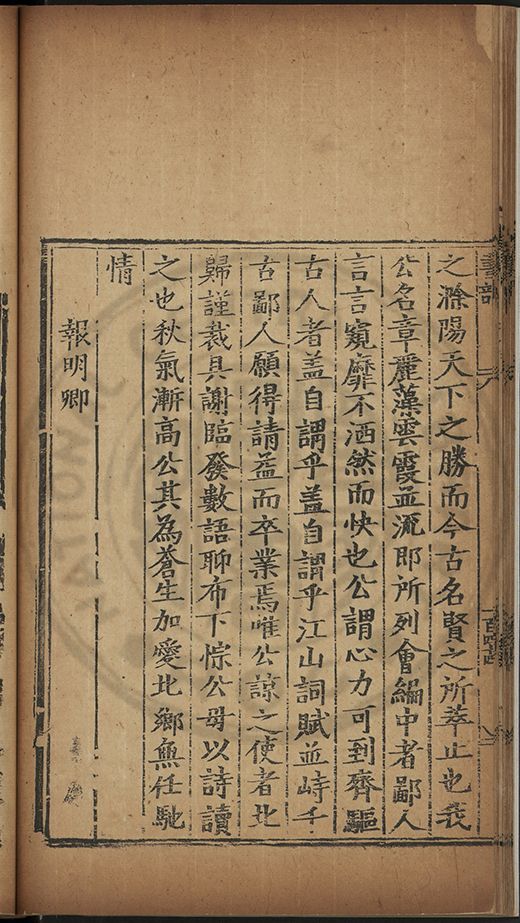 書部
之滁陽天下之勝而今古名賢之所萃止也我
公名章麗藻雲霞並流即所列會編中者鄙人
言言窺靡不洒然而快也公謂心力可到齊驅
古人者盖自謂乎盖自謂乎江山詞賦並峙千
古鄙人願得請益而卒業焉唯公諒之使者北
歸謹裁具謝臨發數語聊布下悰公毋以詩讀
之也秋氣漸高公其為蒼生加愛北鄉無任馳
情
報明卿